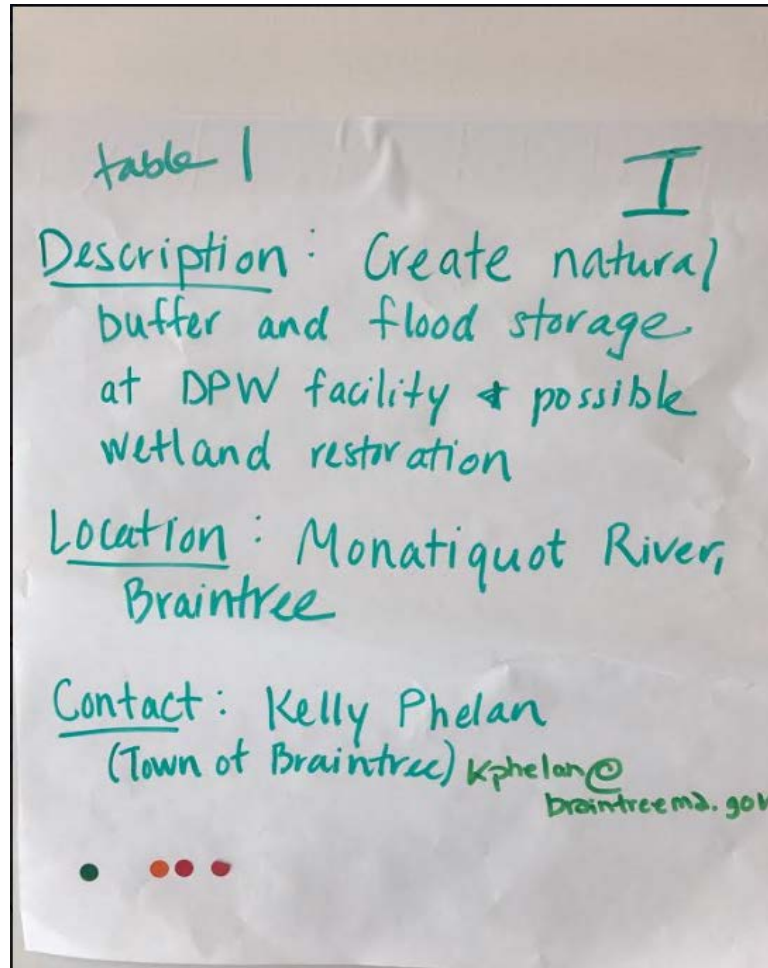 table 1
I
Description: Create natural
buffer and flood storage
at DPW facility & possible
wetland restoration
Location: Monatiquot River,
Braintree
Contact: Kelly Phelan
(Town of Braintree) Kphelan@
braintreema.gov